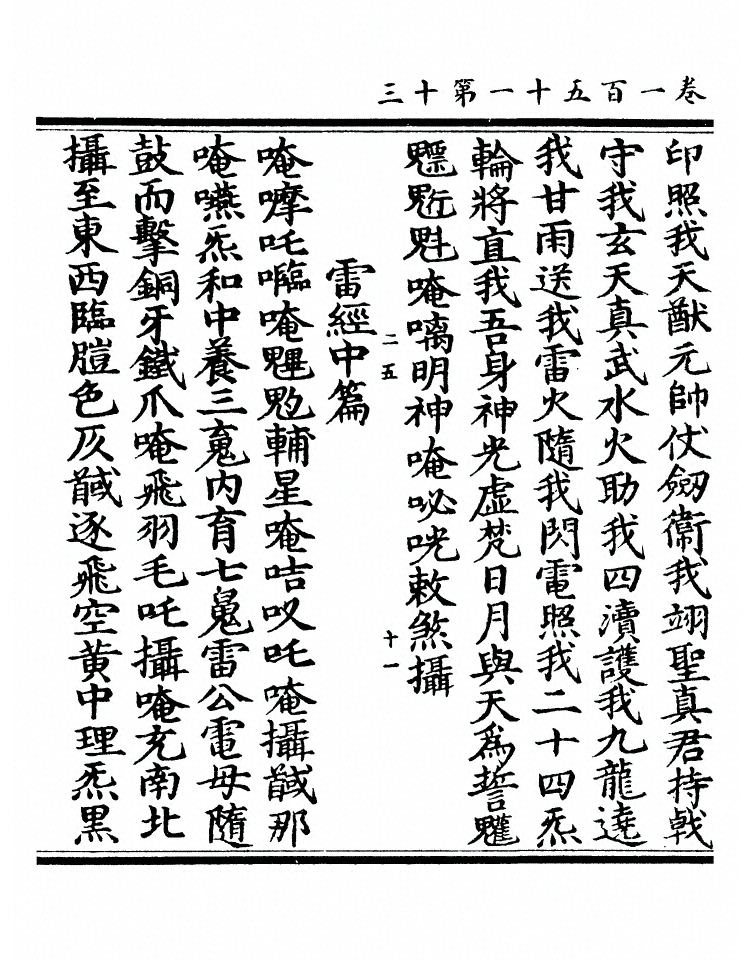 卷一百五十一第十三
印照我天猷元帥仗劔衛我翊聖真君持戟
守我玄天真武水火助我四瀆護我九龍遶
我甘雨送我雷火隨我閃電照我二十四炁
輪將直我吾身神光虛梵日月與天為誓魓
魒魁唵嚆明神唵咇咣敕煞攝
二五
十一
雷經中篇
唵嚤吒𡅏唵魓魁輔星唵咭㕥吒唵攝馘那
唵嚥炁和中養三䰟内育七䰟雷公電母隨
鼓而擊銅牙鐵爪唵飛羽毛吒攝唵充南北
攝至東西臨𦜝色仄馘逐飛空黄中理炁黑